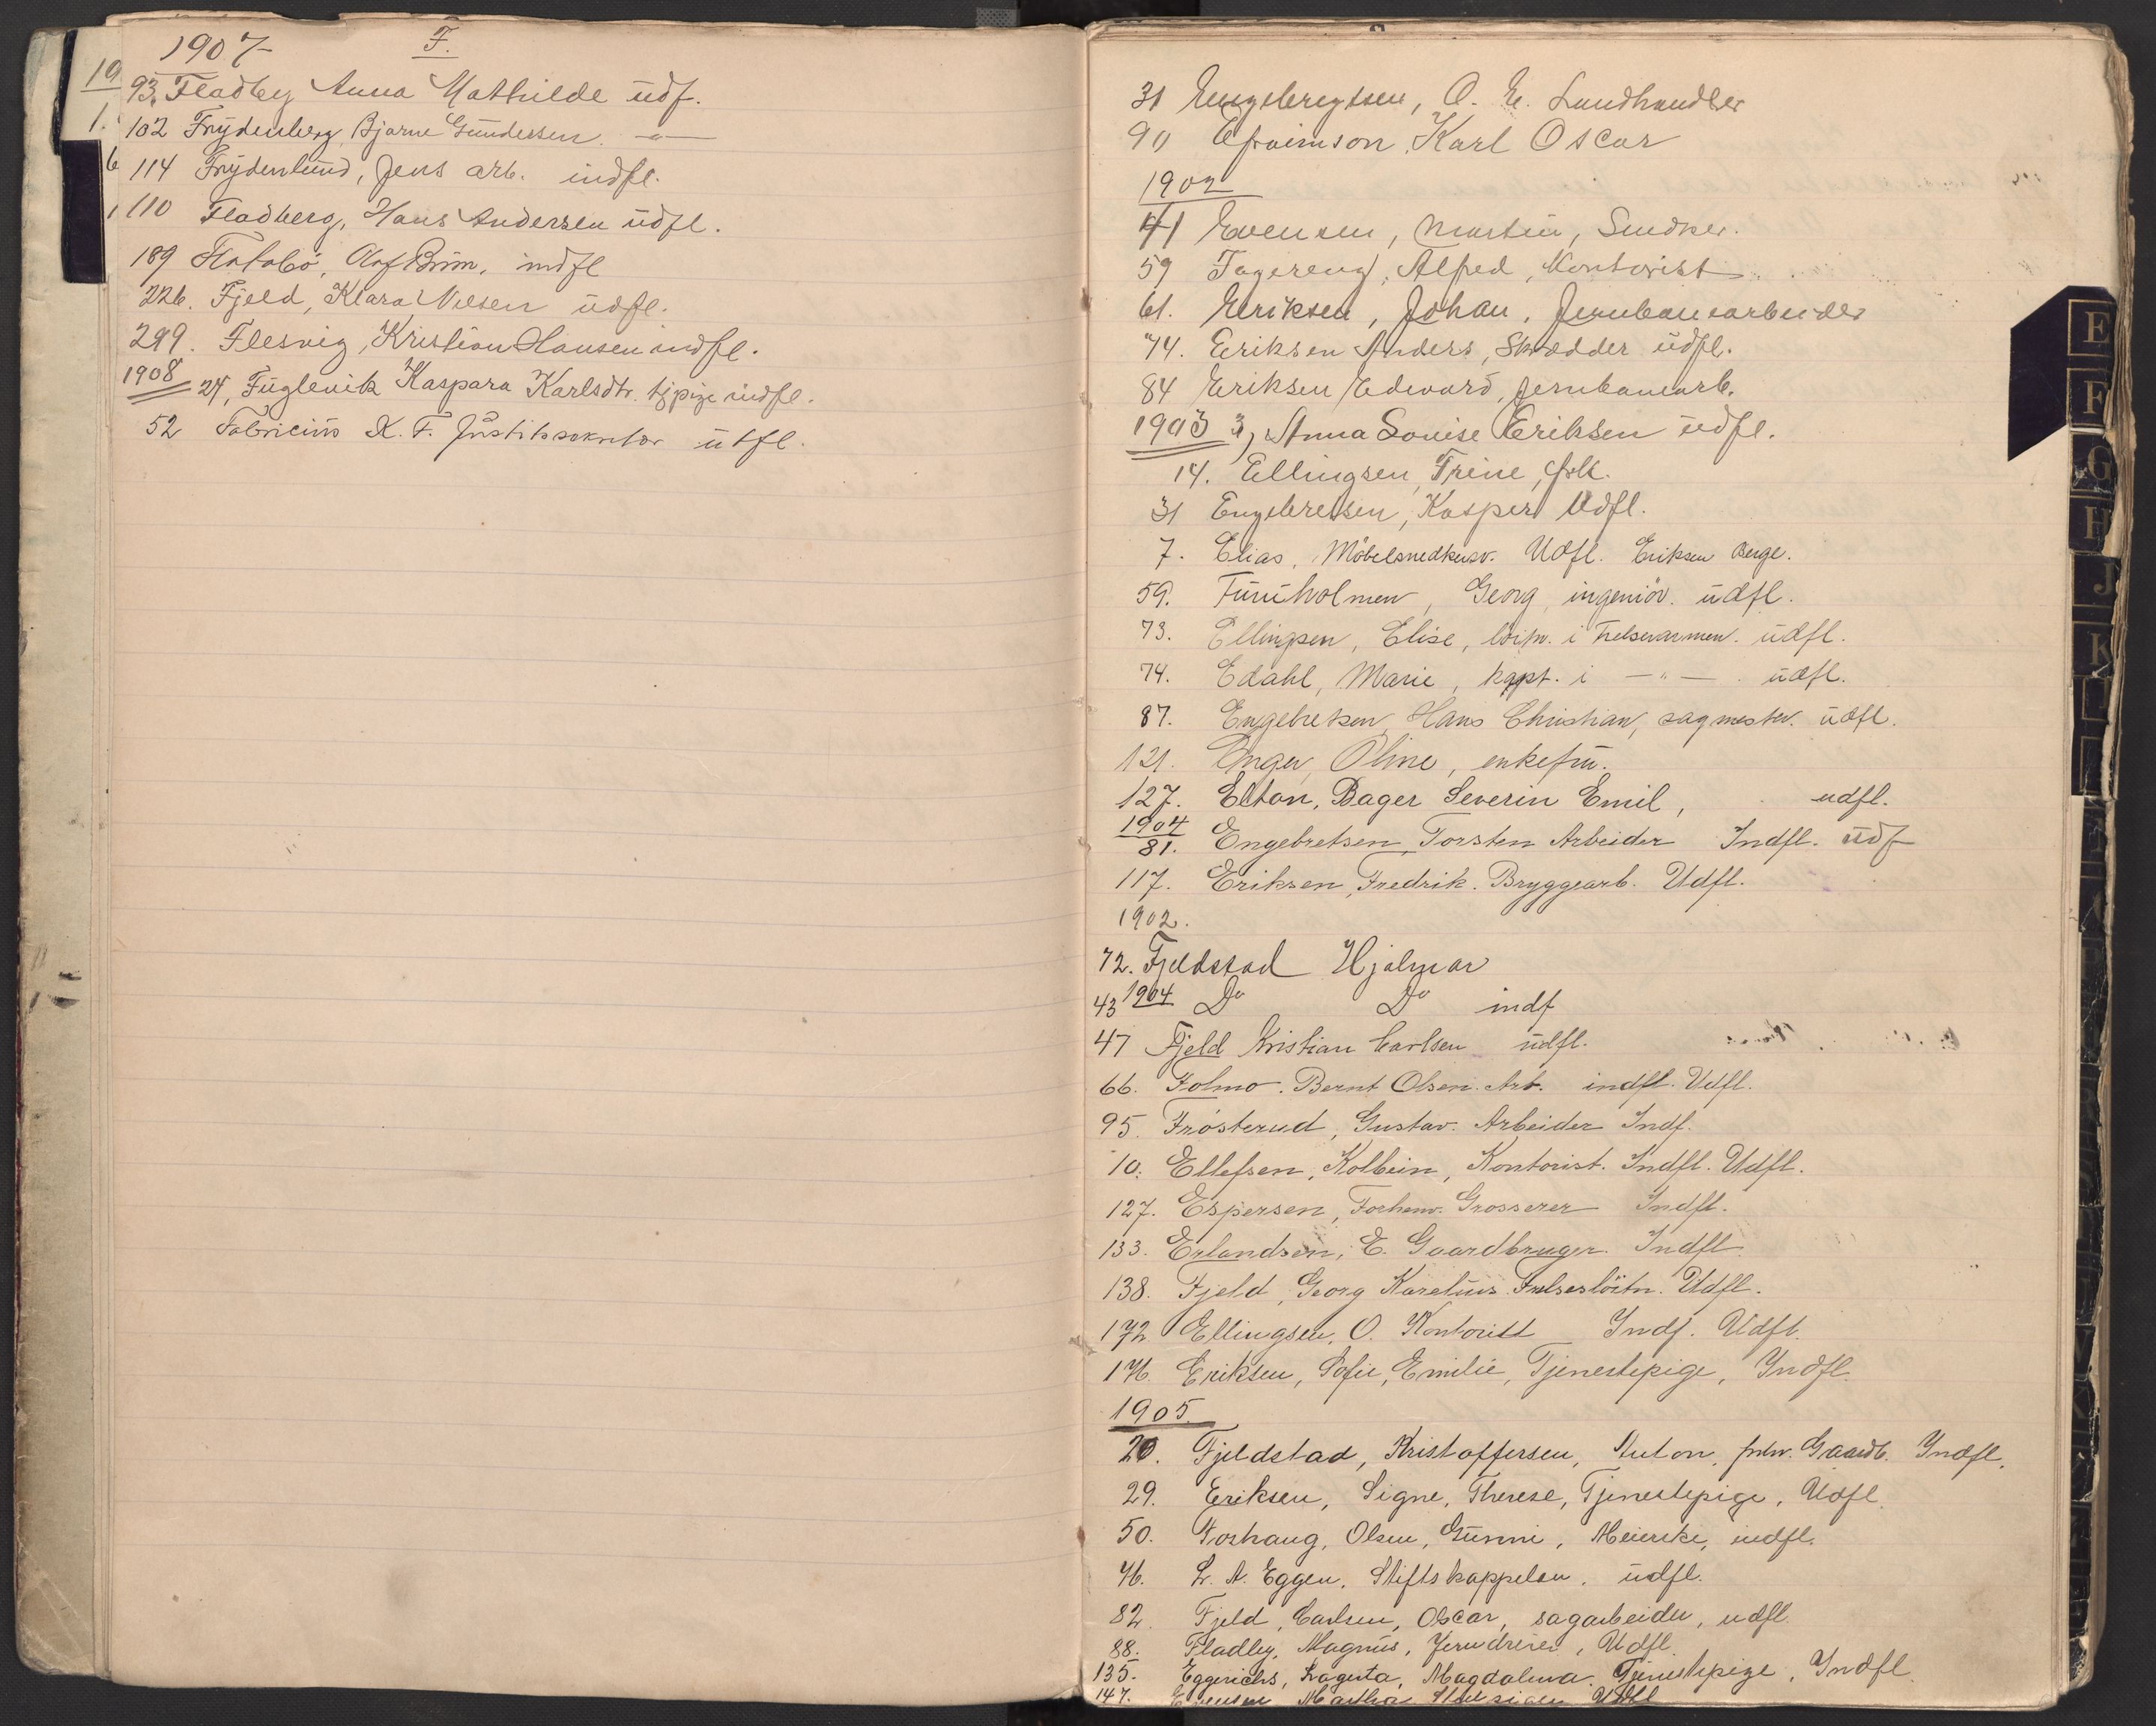 1907 F.
93. Fladby Anna Mathilde udf.
102 Frydenberg, Bjarne Gundersen —"—
114 Frydenlund, Jens arb. indfl.
110 Fladberg, Hans Andersen udfl.
189 Flatabö, Olaf Brim, indfl
226. Fjeld, Klara Nilsen udfl.
299. Flesvig, Kristian Hansen indfl.
1908 24, Fuglevik Kaspara Karlsdtr. tjpige indfl.
52 Fabricius K. F. utfl.
31 Engebregtsen, O. E. Landhandler
90 Efraimson, Karl Oscar
1902
41 Evensen, Martin, Snedker.
59 Fagereng, Alfred, Kontorist
61. Eriksen, Johan, Jernbanearbeider
74. Eriksen Anders, Skrædder udfl.
84 Eriksen Edvard, Jernbanearb.
1903 3, Anna Louise Eriksen udfl.
14. Ellingsen, Trine, frk.
31 Engebretsen, Kasper Udfl.
7. Elias, Möbelsnedkersv. Udfl. Eriksen Berge.
59. Furuholmen, Georg, ingeniör. udfl.
73. Ellingsen, Elise, löitn. i Frelsesarmen. udfl.
74. Edahl, Marie, kapt. i —"— udfl.
87. Engebretsen, Hans Christian, sagmester. udfl.
121. Enger, Oline, enkefru.
127. Elton, Bager Severin Emil, udfl.
1904
81. Engebretsen, Torsten Arbeider Indfl. udf
117. Eriksen, Fredrik. Bryggearb. Udfl.
1902.
72. Fjeldstad Hjalmar
43 1904 Do Do indf
47 Fjeld Kristian Carlsen udfl.
66. Folmo. Bernt Olsen. Arb. indfl. Udfl.
95. Frösterud, Gustav. Arbeider Indf.
10. Ellefsen, Kolbein, Kontorist. Indfl. Udfl.
127. Espersen, Forhenv. Grosserer Indfl.
133. Erlandsen, E. Gaardbruger. Indfl
138. Fjeld, Georg Karelius. Frelseslöitn. Udfl.
172. Ellingsen, O. Kontorist Indf. Udfl.
176. Eriksen, Sofie, Emilie, Tjenestepige, Indfl.
1905.
20. Fjeldstad, Kristoffersen, Anton, fhv. Gaardb. Indfl.
29. Eriksen, Signe, Therese, Tjenestepige, Udfl.
50. Forhaug, Olsen, Gunni, Meierske, indfl.
76. L. A. Eggen, Stiftskappelan. udfl.
82. Fjeld, Carlsen, Oscar, sagarbeider, udfl.
88. Fladby, Magnus, Jerndreier, Udfl.
135. Eggerichs, Magdalena. Tjenestepige, Indfl.
147. Martha Udfl
E
F
G
H
J
K